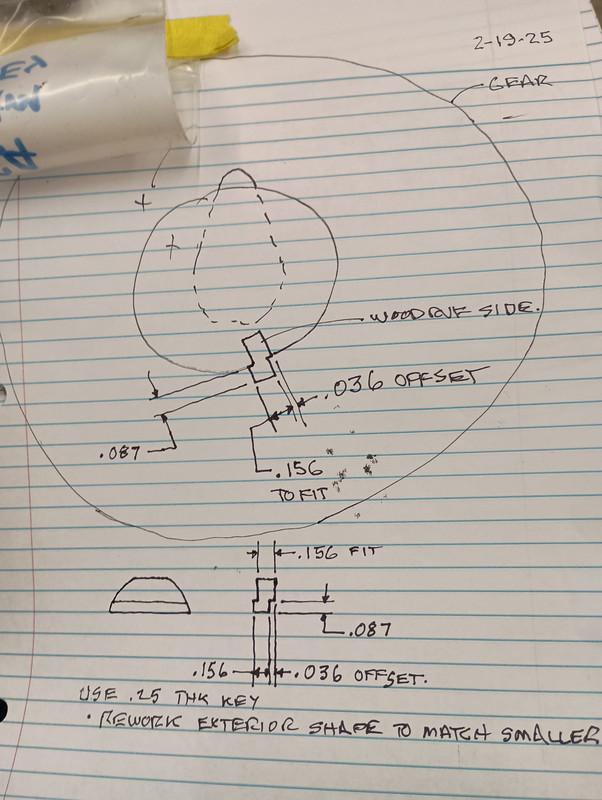 2-19-25
GEAR
WOODRUF SIDE.
.036 OFFSET
.087
.156
TO FIT
.156 FIT
.087
.156
.036 OFFSET.
USE .25 THK KEY
• REWORK EXTERIOR SHAPE TO MATCH SMALLER